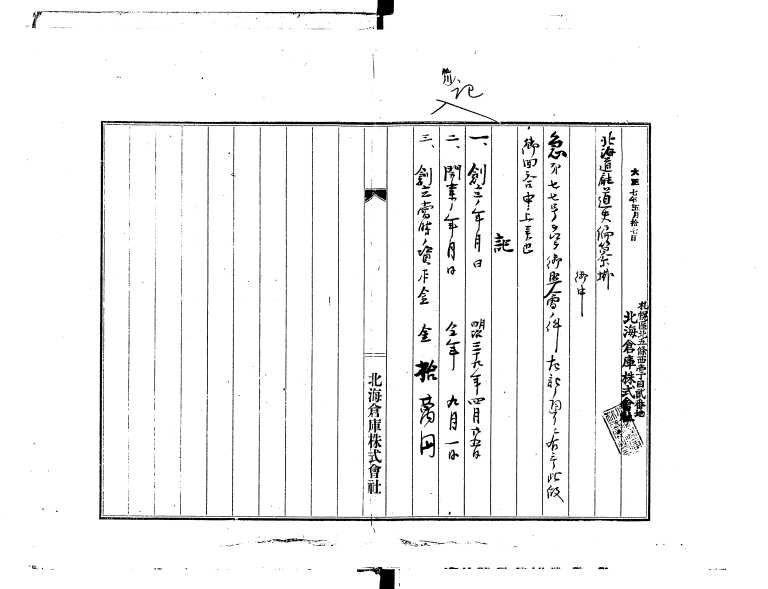 記
大正七年五月拾七日
札幌區北五條西壱丁目貳番地
北海倉庫株式會社
北海道廳道史編纂掛
御中
御照會ノ件左記ノ通リニ有之此段
御回答申上候也
記
一、創立ノ年月日 明治三十九年四月廿五日
二、開業ノ年月日 仝年 九月一日
三、創立當時ノ資本金 金拾萬円
北海倉庫株式會社